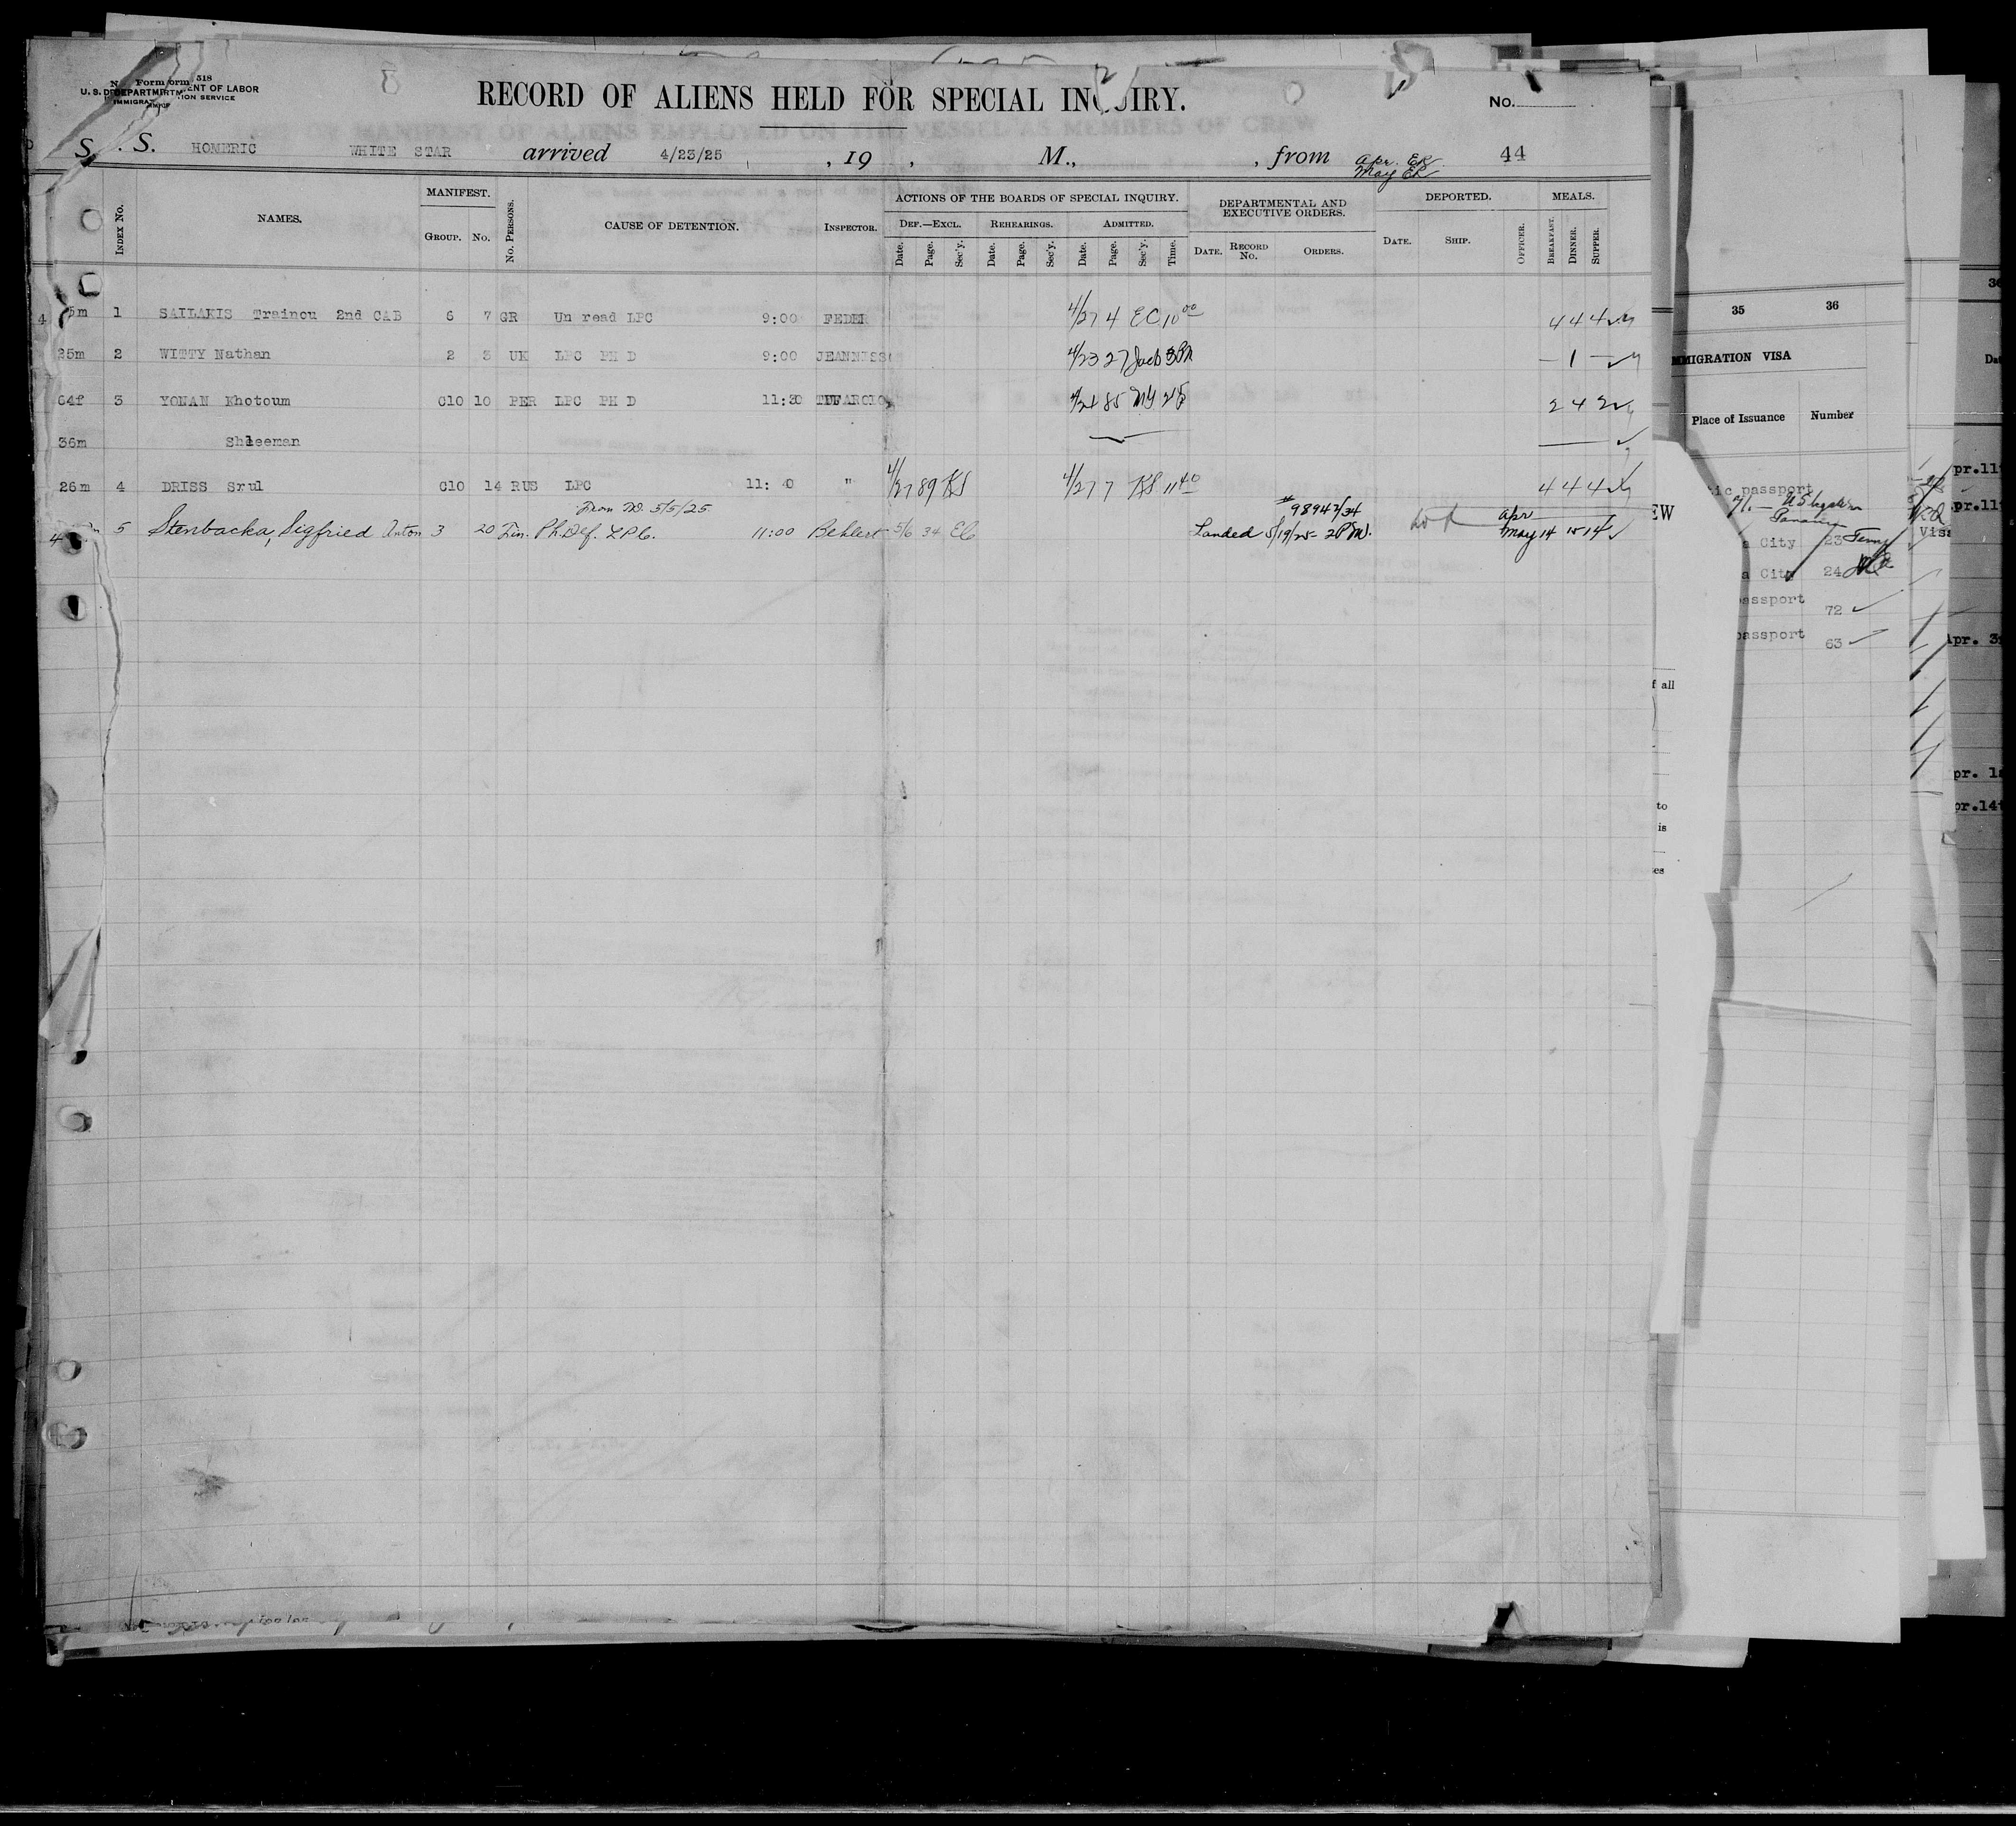 Form 518
U. S. DEPARTMENT OF LABOR
IMMIGRATION SERVICE
RECORD OF ALIENS HELD FOR SPECIAL INQUIRY.
No.
S. S. HOMERIC WHITE STAR arrived 4/23/25 , 19 , M., , from Apr. ER 44
May ER
INDEX No. NAMES. MANIFEST. GROUP. No. No. PERSONS. CAUSE OF DETENTION. INSPECTOR. ACTIONS OF THE BOARDS OF SPECIAL INQUIRY. DEPARTMENTAL AND EXECUTIVE ORDERS. DEPORTED. MEALS.
DEF.—EXCL. REHEARINGS. ADMITTED.
Date. Page. Sec'y. Date. Page. Sec'y. Date. Page. Sec'y. Time. DATE. RECORD No. ORDERS. DATE. SHIP. OFFICER. BREAKFAST. DINNER. SUPPER.
5m 1 SAILAKIS Trainou 2nd CAB 6 7 GR Un read LPC 9:00 FEDER 4/27 4 EC 10 00 4 4 4
25m 2 WITTY Nathan 2 3 UK LPC PH D 9:00 JEANNISS 4/23 27 3PM — 1 —
64f 3 YONAN Khotoum C10 10 PER LPC PH D 11:30 4/24 85 2 4 2
36m Shleeman
26m 4 DRISS Srul C10 14 RUS LPC 11: 0 " 4/27 89 KS 4/27 7 KS 11 40 4 4 4
From 5/5/25
5 Stenbacka, Sigfried Anton 3 20 Fin. Ph. Def. LPC. 11:00 Behlert 5/6 34 EC Landed 5/19/25 - 2PM. Apr
#98942/34
May 14 15 14
35 36
IMMIGRATION VISA
Place of Issuance Number
passport
a City 23
a City 24
passport 72
passport 63
EW
f all
to
is
Visa
pr.11
pr.11
Apr. 3
pr. 1
pr.14